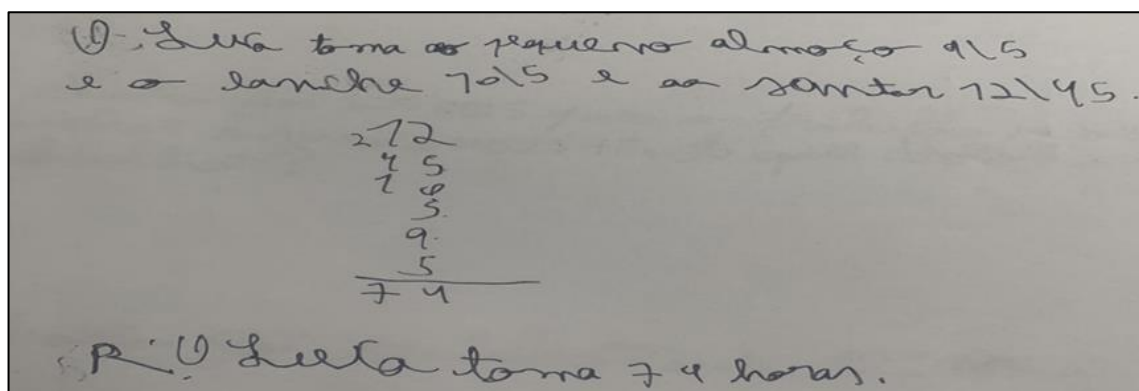 O Luca toma ao pequeno almoço 9\5
e o lanche 10\5 e ao santar 12\45.
2 12
4 5
1 0
5.
9.
5
7 4
R: O Luca toma 74 horas.